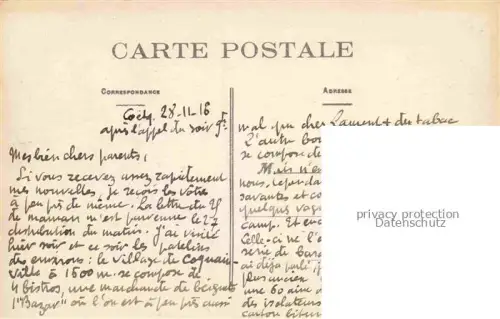 CARTE POSTALE
CORRESPONDANCE
ADRESSE
Coëtq. 28-11-16
après l'appel du soir 9h.
Mes bien chers parents,
Si vous recevez assez rapidement
mes nouvelles, je reçois les vôtres
à peu près de même. La lettre du 25
de maman m'est parvenue le 27
distribution du matin. J'ai visité
hier soir et ce soir les patelins
des environs : le village de Coquain-
ville à 1500 m. se compose de
4 bistros, une marchande de beignets
1 "Bazar" où l'on est à peu près aussi
mal que chez Laurent + du tabac
L'autre
se compose de
Mais n'es
nous, cependa
savantes et co
quelques vaga
camp. Et enc
Celle-ci ne l'
série de bara
ai déjà parlé
plus ancien
une 60 aine d
des isolateurs
carton bitum
privacy protection
www.ansichtskartenversand.com